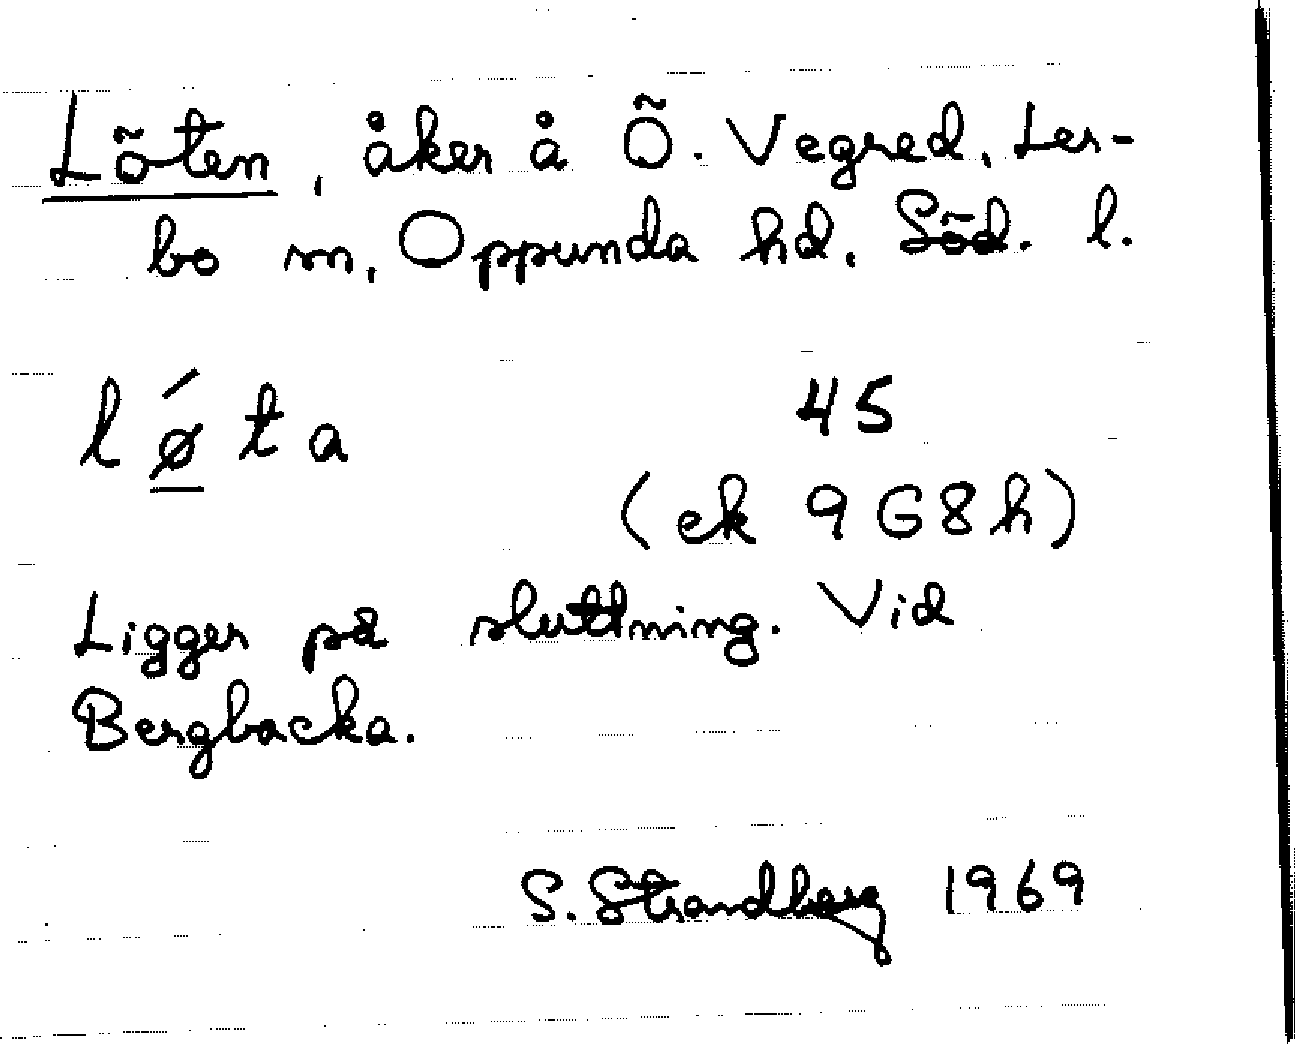 Löten, åker å Ö. Vegred, Ler-
bo sn, Oppunda hd, Söd. l.
lǿ̲ta 45
(ek 9G8h)
Ligger på sluttning. Vid
Bergbacka.
S. Strandberg 1969